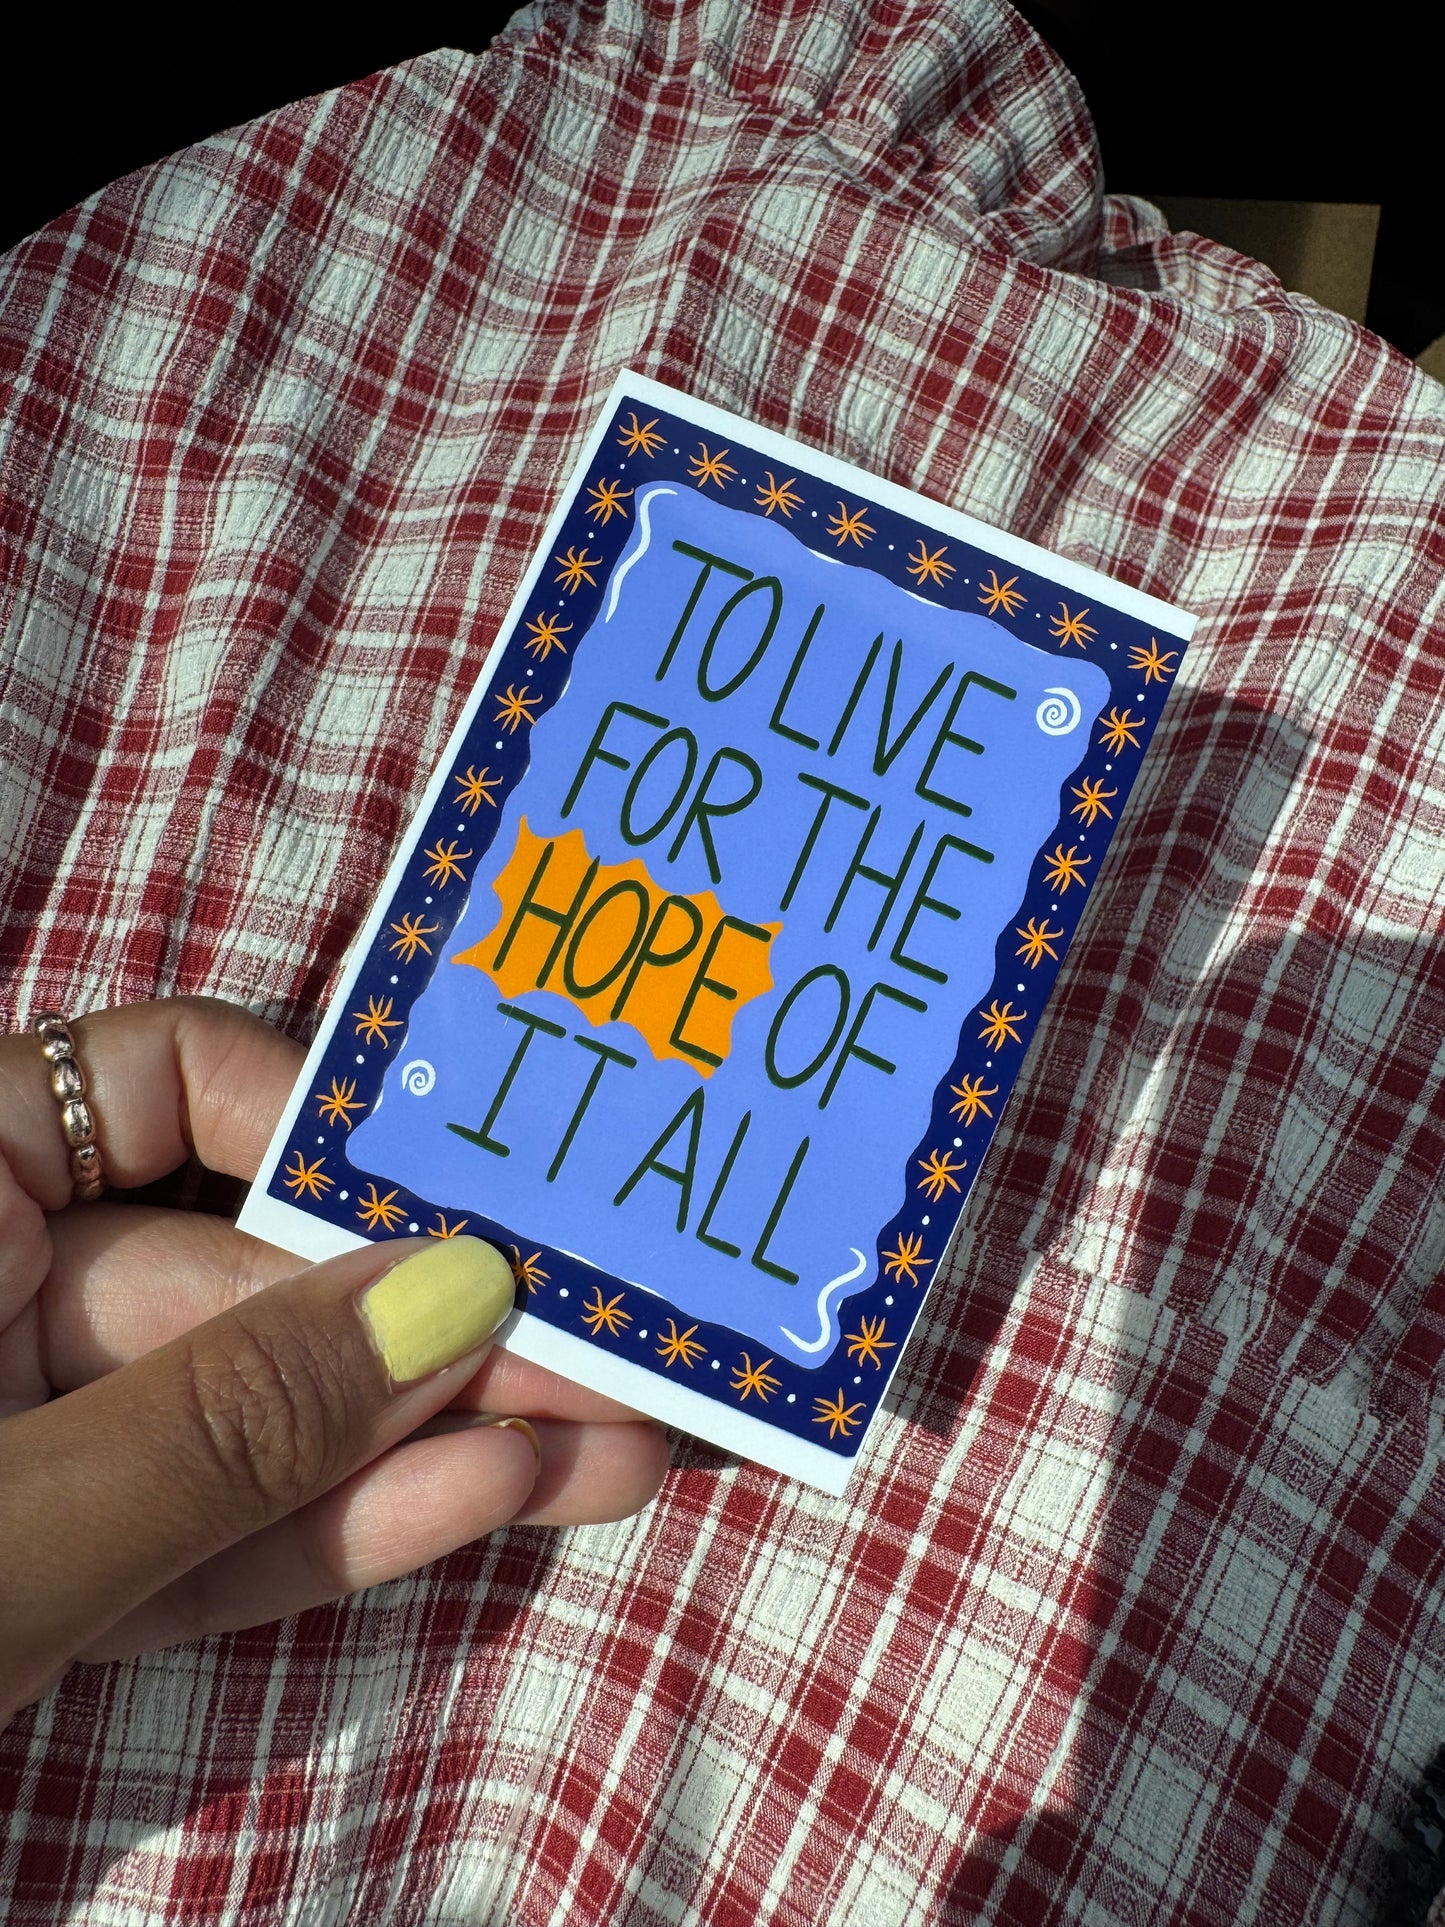 TO LIVE
FOR THE
HOPE OF
IT ALL